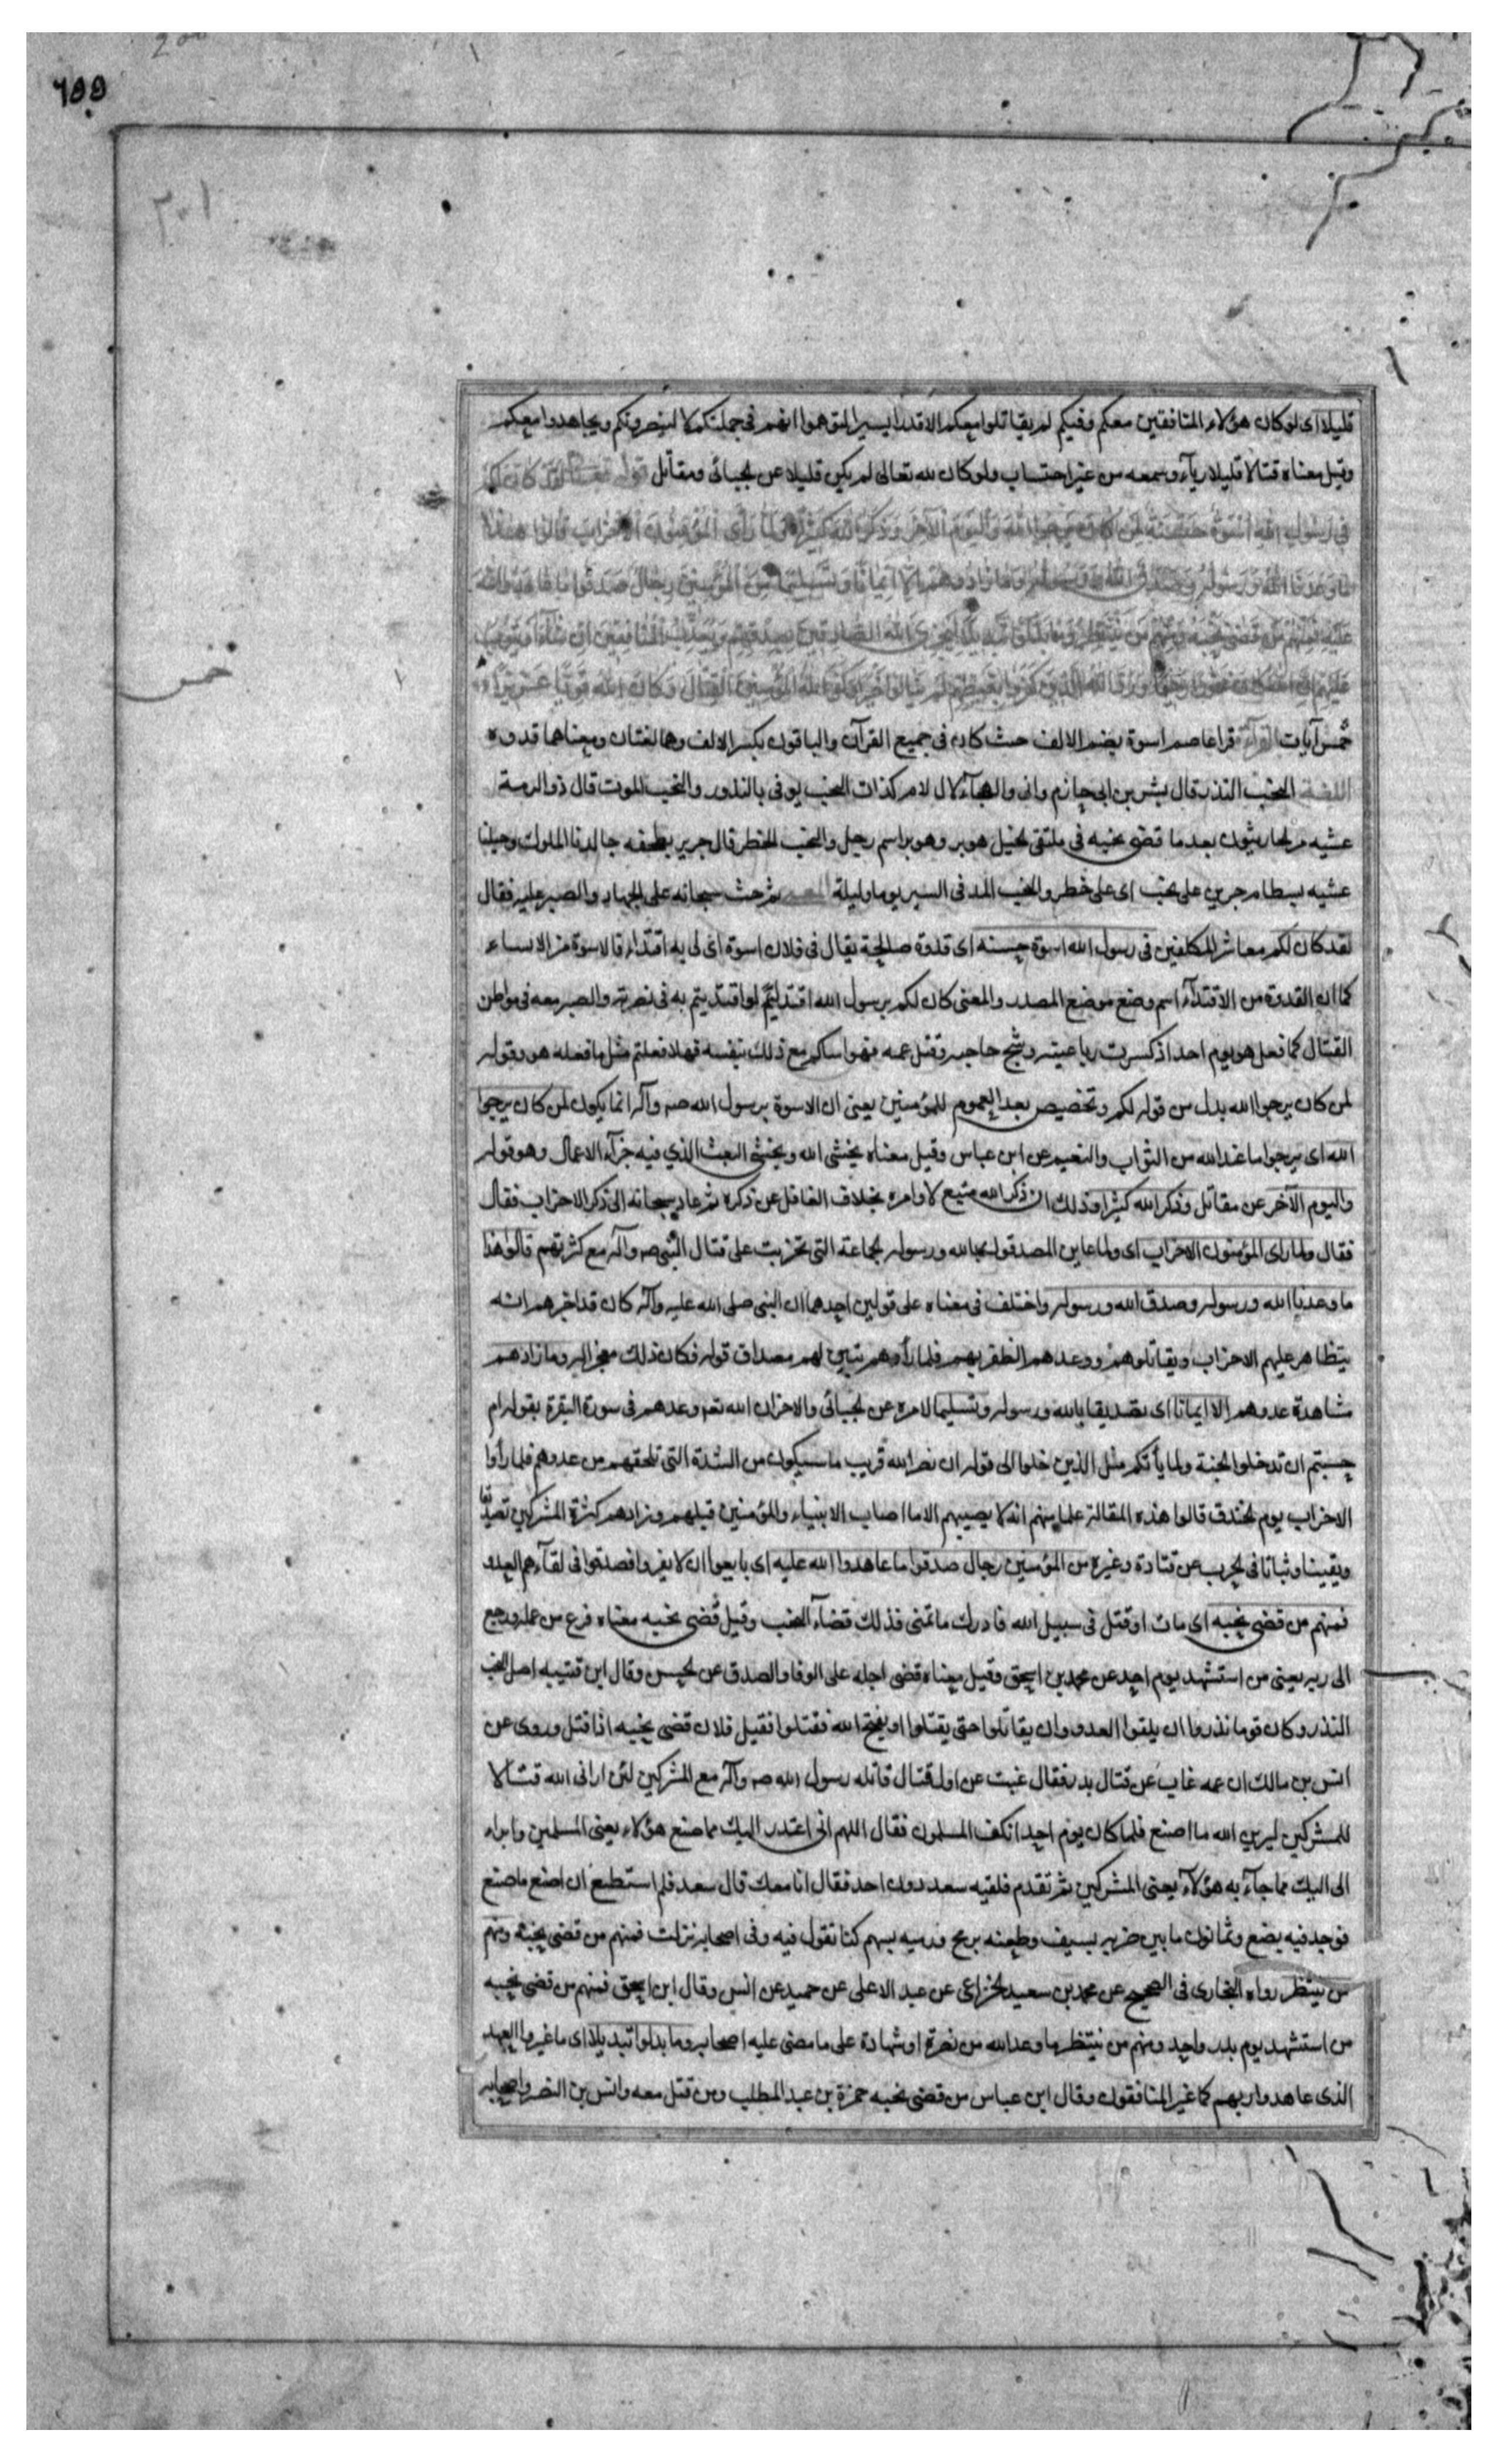 ٦٥٥
قليلا اى لو كان هؤلاء المنافقين معكم وفيكم لم يقاتلوا معكم الا قدرا يسيرا ليتوهموا انهم فى جملتكم لا لينصرونكم ويجاهدوا معكم
وقيل معناه قتالا قليلا رياء وسمعه من غير احتساب ولو كان لله تعالى لم يكن قليلا عن الجبائى ومقاتل قوله تعالى لقد كان لكم
فى رسول الله اسوة حسنة لمن كان يرجوا الله واليوم الآخر وذكر الله كثيرا ولما رأى المؤمنون الاحزاب قالوا هذا
ما وعدنا الله ورسوله وصدق الله ورسوله وما زادهم الا ايمانا وتسليما من المؤمنين رجال صدقوا ما عاهدوا الله
عليه فمنهم من قضى نحبه ومنهم من ينتظر وما بدلوا تبديلا ليجزى الله الصادقين بصدقهم ويعذب المنافقين ان شاء او يتوب
عليهم ان الله كان غفورا رحيما ورد الله الذين كفروا بغيظهم لم ينالوا خيرا وكفى الله المؤمنين القتال وكان الله قويا عزيزا
خمس
خمس آيات القرآءة قرا عاصم اسوة بضم الالف حث كان فى جميع القرآن والباقون بكسر الالف وهما لغتان ومعناهما قدوه
اللغة النحب النذر قال بشر بن ابى حازم وانى والهجآء لال لام كذات النحب يوفى بالنذور والنحب الموت قال ذو الرمة
عشيه مر الحارثيون بعد ما قضى نحبه فى ملتقى الخيل هوبر وهوبر اسم رجل والنحب الخطر قال جرير بطخفه جالدنا الملوك وخيلنا
عشيه بسطام جرين على نحب اى على خطر والنحب المد فى السير يوما وليلة ثم حث سبحانه على الجهاد والصبر عليه فقال
لقد كان لكم معاشر المكلفين فى رسول الله اسوة حسنه اى قدوة صالحة يقال فى فلان اسوة اى لى به اقتداء فالاسوة من الاتساء
كما ان القدوة من الاقتدآء اسم وضع موضع المصدر والمعنى كان لكم برسول الله اقتدا لو اقتديتم به فى نصرته والصبر معه فى مواطن
القتال كما فعل هو يوم احد اذ كسرت رباعيته وشج حاجبه وقتل عمه فهواساكم مع ذلك بنفسه فهلا فعلتم مثل ما فعله هو وقوله
لمن كان يرجوا الله بدل من قوله لكم وتخصيص بعد العموم للمؤمنين يعنى ان الاسوة برسول الله صه وآله انما يكون لمن كان يرجوا
الله اى يرجوا ما عند الله من الثواب والنعيم عن ابن عباس وقيل معناه يخشى الله ويخشى البعث الذي فيه جزآء الاعمال وهو قوله
واليوم الآخر عن مقاتل وذكر الله كثيرا وذلك ان ذكر الله متبع لاوامره بخلاف الغافل عن ذكره ثم عاد سبحانه الى ذكر الاحزاب فقال
فقال ولما راى المؤمنون الاحزاب اى ولما عاين المصدقون بالله ورسوله الجماعة التى تحزبت على قتال النبى صه وآله مع كثرتهم قالوا هذا
ما وعدنا الله ورسوله وصدق الله ورسوله واختلف فى معناه على قولين احدهما ان النبى صلى الله عليه وآله كان قد اخبرهم انه
يتظاهر عليهم الاحزاب ويقاتلوهم ووعدهم الظفر بهم فلما رأوهم تبين لهم مصداق قوله فكان ذلك معجزا له وما زادهم
مشاهدة عدوهم الا ايمانا اى تصديقا بالله ورسوله وتسليما لامره عن الجبائى والاخر ان الله تعه وعدهم فى سورة البقرة بقوله ام
حسبتم ان تدخلوا الجنة ولما يأتكم مثل الذين خلوا الى قوله ان نصر الله قريب ما سيكون من الشدة التى تلحقهم من عدوهم فلما رأوا
الاحزاب يوم الخندق قالوا هذه المقالة علما منهم انه لا يصيبهم الا ما اصاب الانبياء والمؤمنين قبلهم وزادهم كثرة المشركين تصديقا
ويقينا وثباتا فى الحرب عن قتادة وغيره من المؤمنين رجال صدقوا ما عاهدوا الله عليه اى بايعوا ان لا يفروا فصدقوا فى لقآءهم العدو
فمنهم من قضى نحبه اى مات او قتل فى سبيل الله فادرك ما تمنى فذلك قضآء النحب وقيل قضى نحبه معناه فرغ من عمله ورجع
الى ربه يعنى من استشهد يوم احد عن محمد بن اسحق وقيل معناه قضى اجله على الوفا والصدق عن الحسن وقال ابن قتيبه اصل النحب
النذر وكان قوما نذروا ان يلقوا العدو وان يقاتلوا حتى يقتلوا او يفتح الله فقتلوا فقيل فلان قضى نحبه اذا قتل وروى عن
انس بن مالك ان عمه غاب عن قتال بدر فقال غبت عن اول قتال قاتله رسول الله صه وآله مع المشركين لئن ارانى الله قتالا
للمشركين ليرين الله ما اصنع فلما كان يوم احد انكف المسلمون فقال اللهم انى اعتذر اليك مما صنع هؤلاء يعنى المسلمين وابراء
الى اليك مما جآء به هؤلآء يعنى المشركين ثم تقدم فلقيه سعد دون احد فقال انا معك قال سعد فلم استطع ان اصنع ما صنع
فوجد فيه بضع وثمانون ما بين ضربه بسيف وطعنه برمح ورميه بسهم كنا نقول فيه وفى اصحابه نزلت فمنهم من قضى نحبه ومنهم
من ينتظر رواه البخارى فى الصحيح عن محمد بن سعيد الخزاعى عن عبد الاعلى عن حميد عن انس وقال ابن اسحق فمنهم من قضى نحبه
من استشهد يوم بدر واحد ومنهم من ينتظر ما وعد الله من نصرة او شهادة على ما مضى عليه اصحابه وما بدلوا تبديلا اى ما غيروا العهد
الذى عاهدوا ربهم كما غير المنافقون وقال ابن عباس من قضى نحبه حمزة بن عبد المطلب ومن قتل معه وانس بن النضر واصحابه